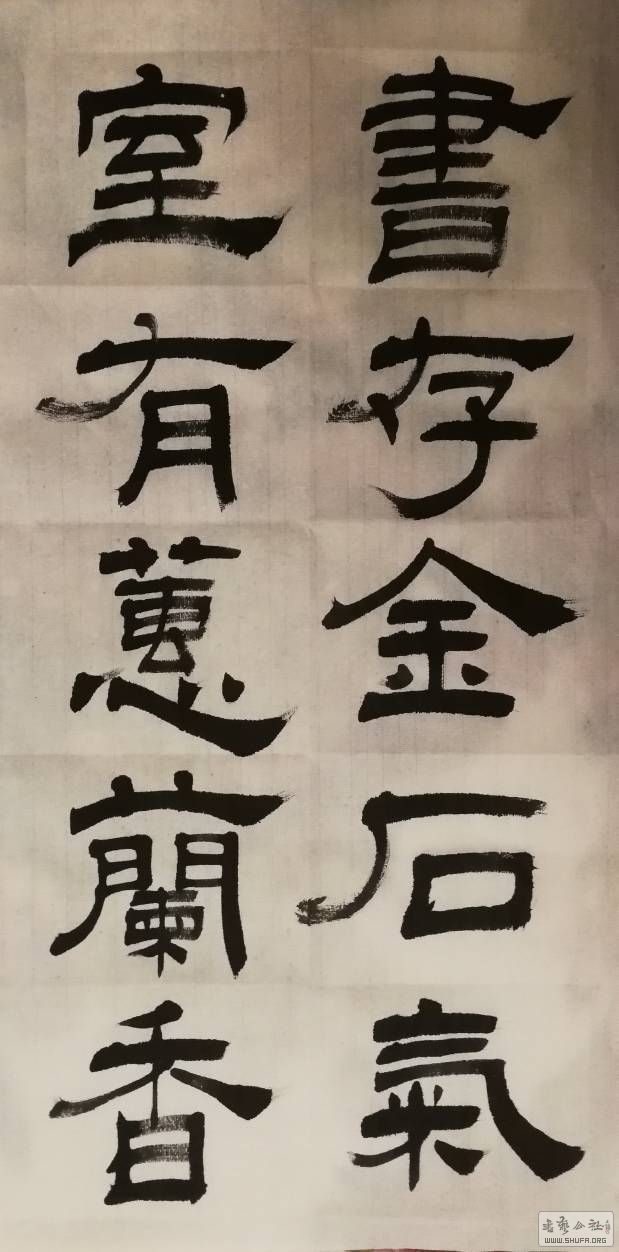 書存金石氣
室有蕙蘭香
書藝公社
WWW.SHUFA.ORG